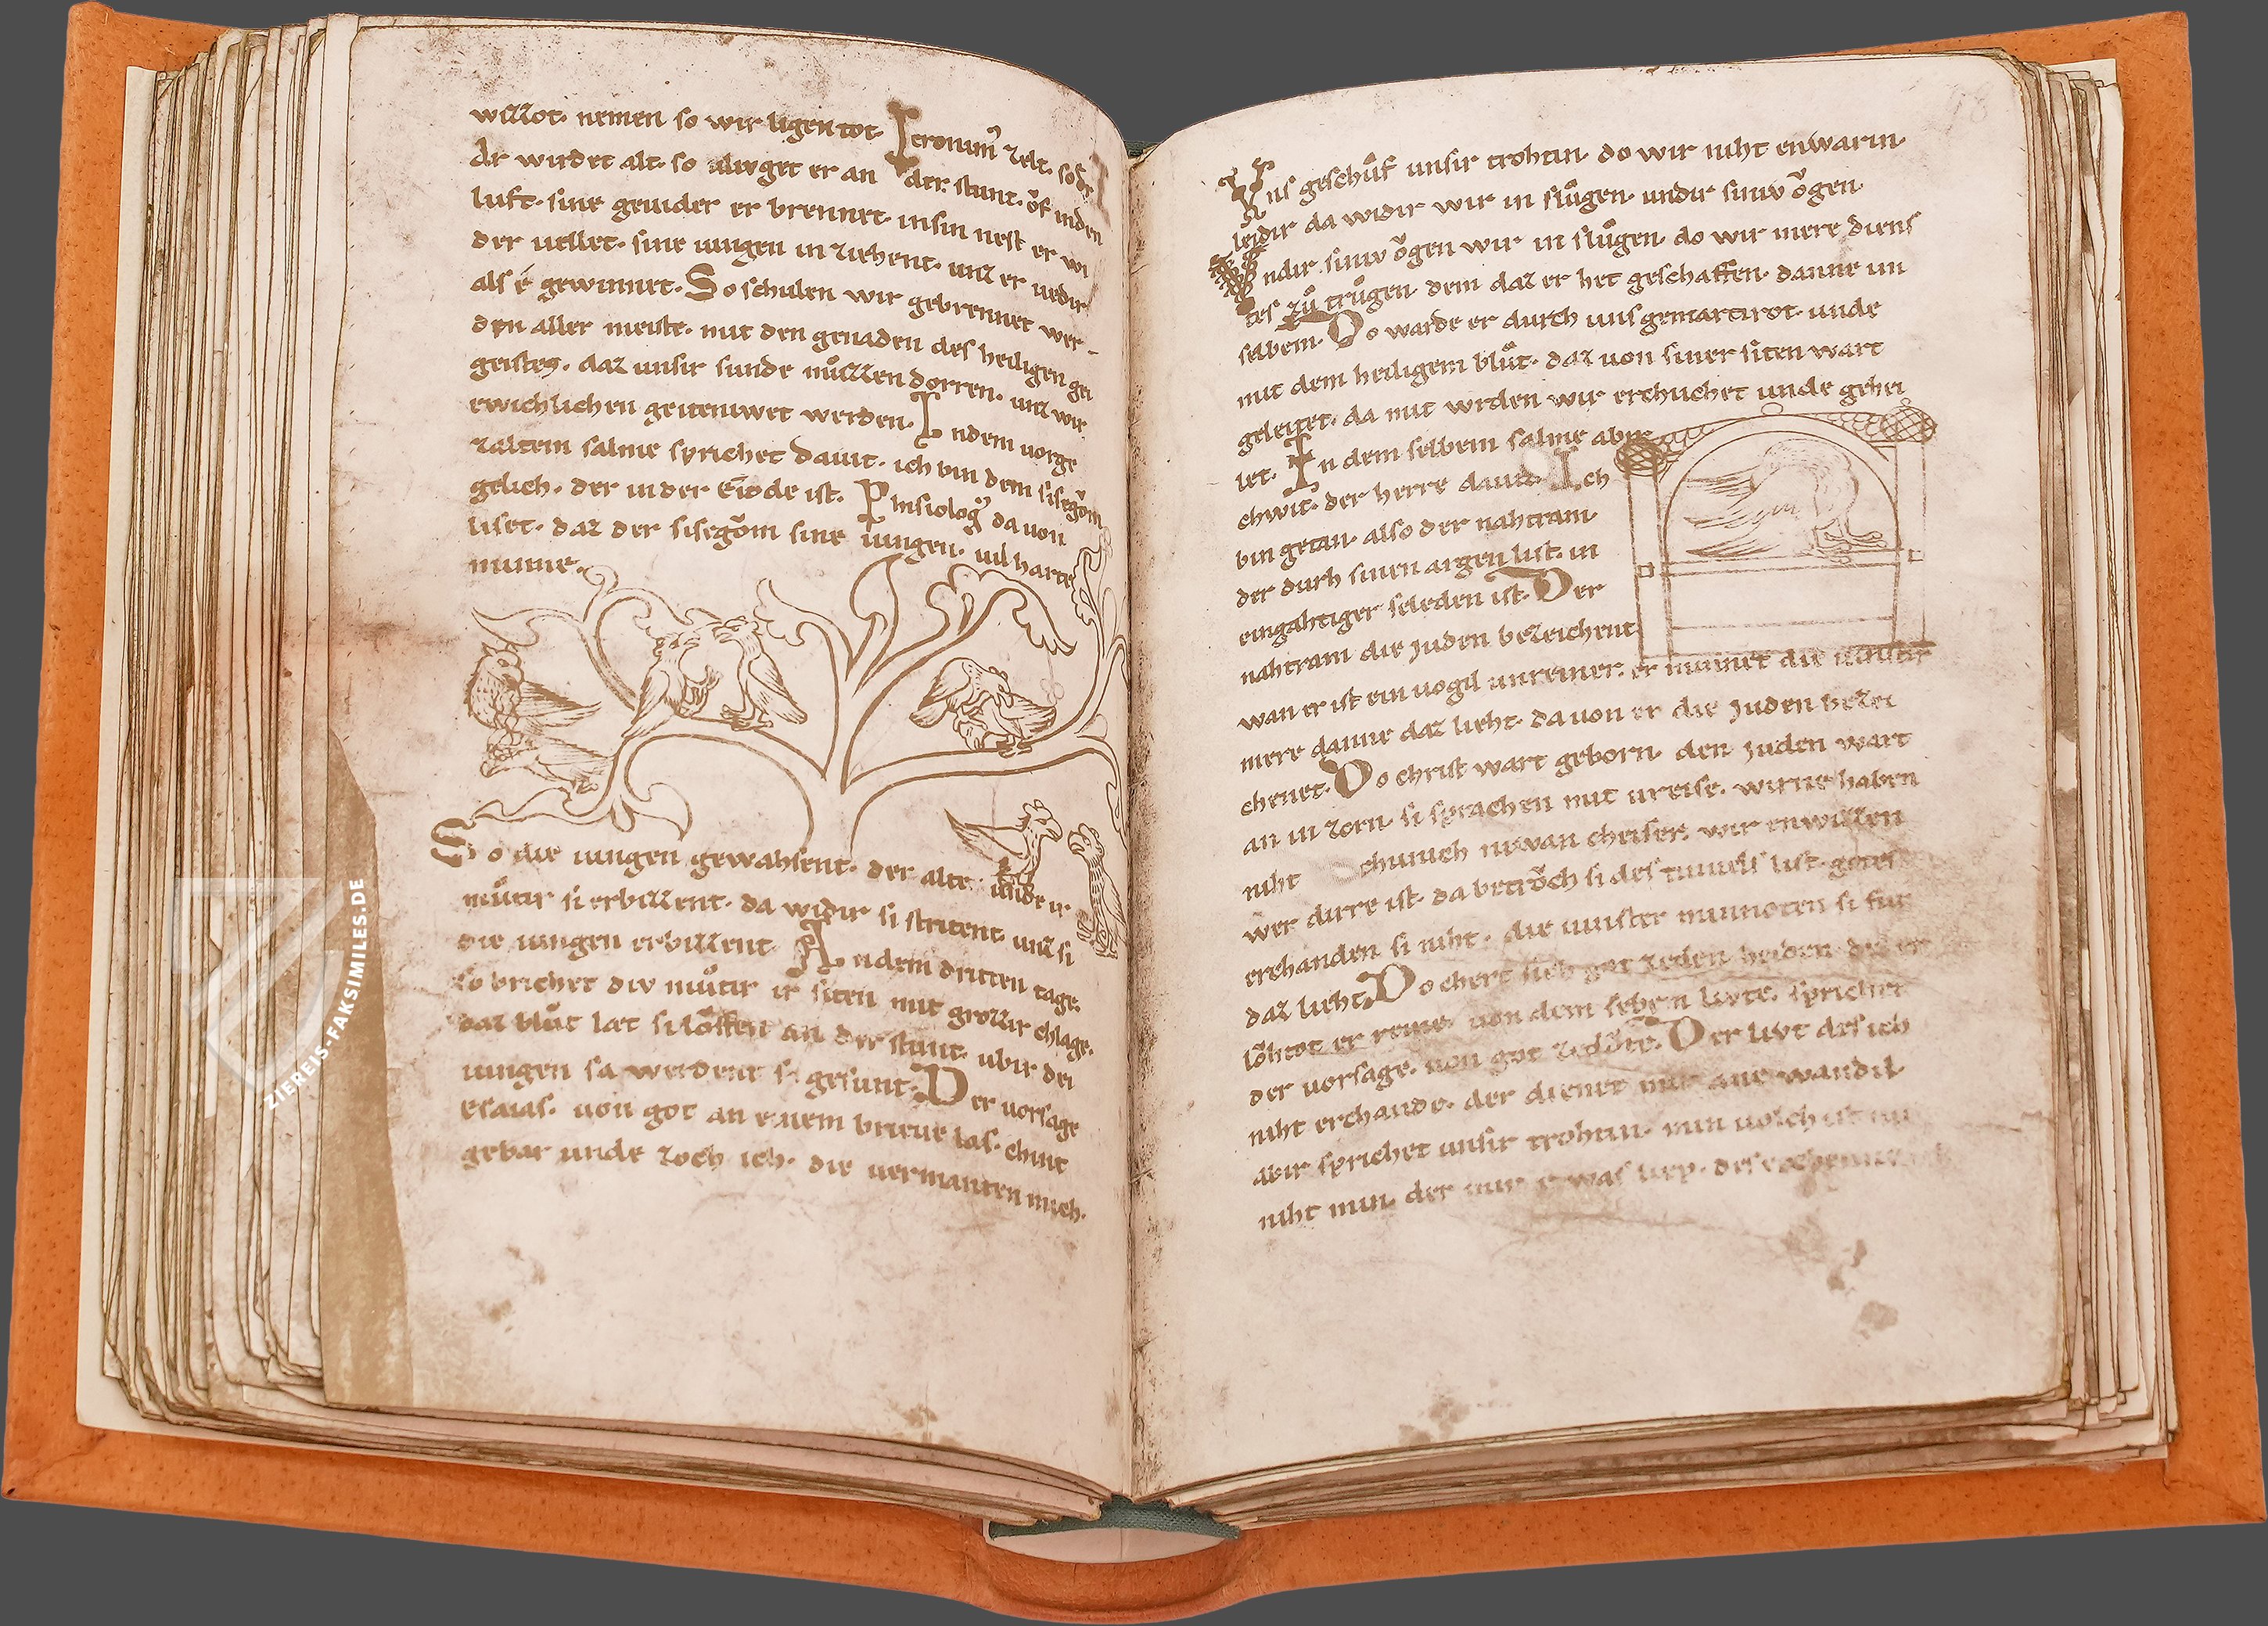 wizzot· nemen so wir ligen tot· Ieronim᷒ zelt· so d
Ar wirdet alt· so uliuget er an der stunt· ŏf inden
luft· sine geuider er brennet· in sin nest er wi
der uellet· sine iungen in ziehent· unz er uedir
als é gewinnet· So schulen wir gebrennet wer-
den aller meiste· mit den genaden des heiligen gei
geistes· daz unsir sunde mů̊zzen dorren· unz wir
ewichlichen geiteniwet werden· In dem uorge
zaltem salme sprichet Dauit· ich bin dem sisegŏm
gelich· der in der Einode ist· Phisiolog᷒ da uon
liset· daz der sisegŏm sine iungen· uil harte
minne·
So die iungen gewahsent· der alte unde ir
mů̊tir si erbizzent· da widir si stritent· unz si
die iungen erbizzent· An dem dritten tage·
so brichet div mů̊tir ir siten mit grozzir chlage·
daz blů̊t læt si lŏffen an der stunt· ubir dei
iungen sa werdent si gesunt· Der uorsage
esaias· uon got an einem brieue las· chint
gebar unde zoch ich· die uermanten mich·
Uns geschů̊f unsir trohtin· do wir niht enwarin·
leidir da widir wir in slů̊gen· undir siniv ŏgen·
Undir siniv ŏgen wir in slů̊gen· do wir mere diens
tes zů̊ trů̊gen· dem daz er het geschaffen· danne im
selbem· Do warde er durch uns gemartirot· unde
mit dem heiligem blů̊t· daz uon siner siten wart
geleitet· da mit wrden wir erchuchet unde gehei
let· In dem selbem salme abir
chwit· der herre dauit· Ich
bin getan· also der nahtram·
der durh sinen argen list· in
eingahtiger seleden ist· Der
nahtram die Juden bezeichent·
wan er ist ein uogil unreiner· er minnet die uinstir
mere danne daz lieht· da uon er die Juden bezei
chenet· Do christ wart geborn· den Juden wart
an in zorn· si sprachen mit ureise· wir ne haben
niht chunich niwan cheiser· wir enwizzen
wer dirre ist· da betrŏch si des tiuuels list· gotes
erchanden si niht· die uinster minnoten si fur
daz lieht· Do chert sich got zeden heiden· die er
lŏhtot er reine· uon dem selbem livte· sprichet
der uorsage· uon got Der livt des ich
niht erchande· der dienet mir ane wandil·
abir sprichet unsir trohtin· min uolch ist nu
niht min· der mir e was liep·
ZIEREIS-FAKSIMILES.DE